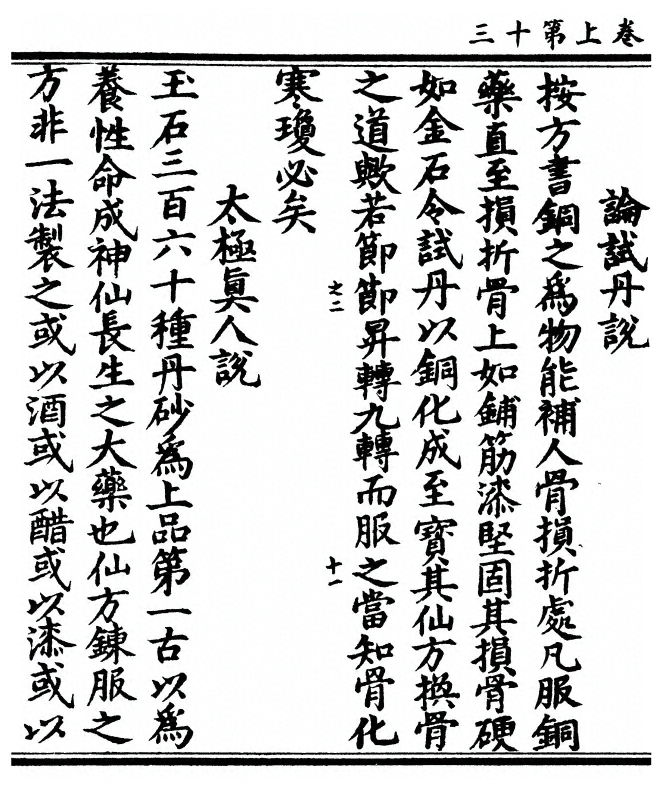 卷上第十三
論試丹說
按方書銅之為物能補人骨損折處凡服銅
藥直至損折骨上如鋪筋漆堅固其損骨硬
如金石令試丹以銅化成至寶其仙方換骨
之道歟若節節昇轉九轉而服之當知骨化
之二
十一
寒瓊必矣
太極眞人說
玉石三百六十種丹砂爲上品第一古以爲
養性命成神仙長生之大藥也仙方鍊服之
方非一法製之或以酒或以醋或以漆或以